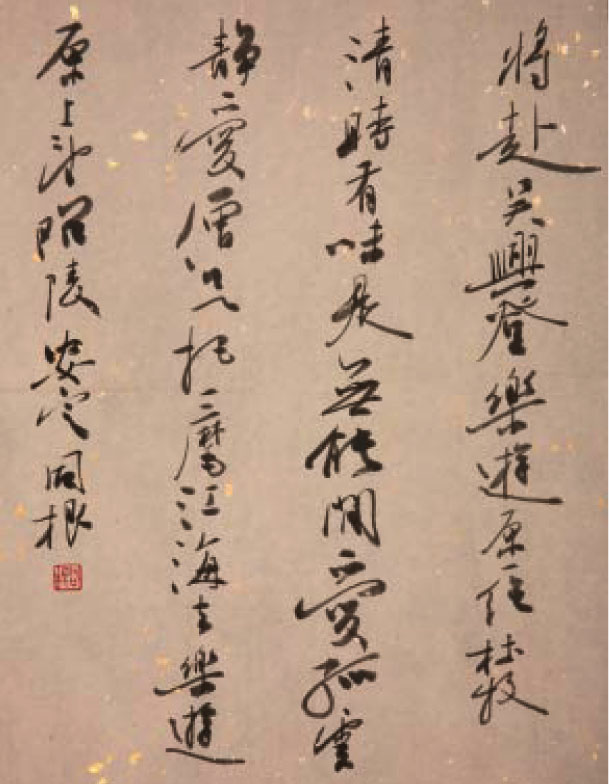 將赴吳興登樂遊原一絕杜牧
清時有味是無能閒愛孤雲
靜愛僧欲把一麾江海去樂遊
原上望昭陵